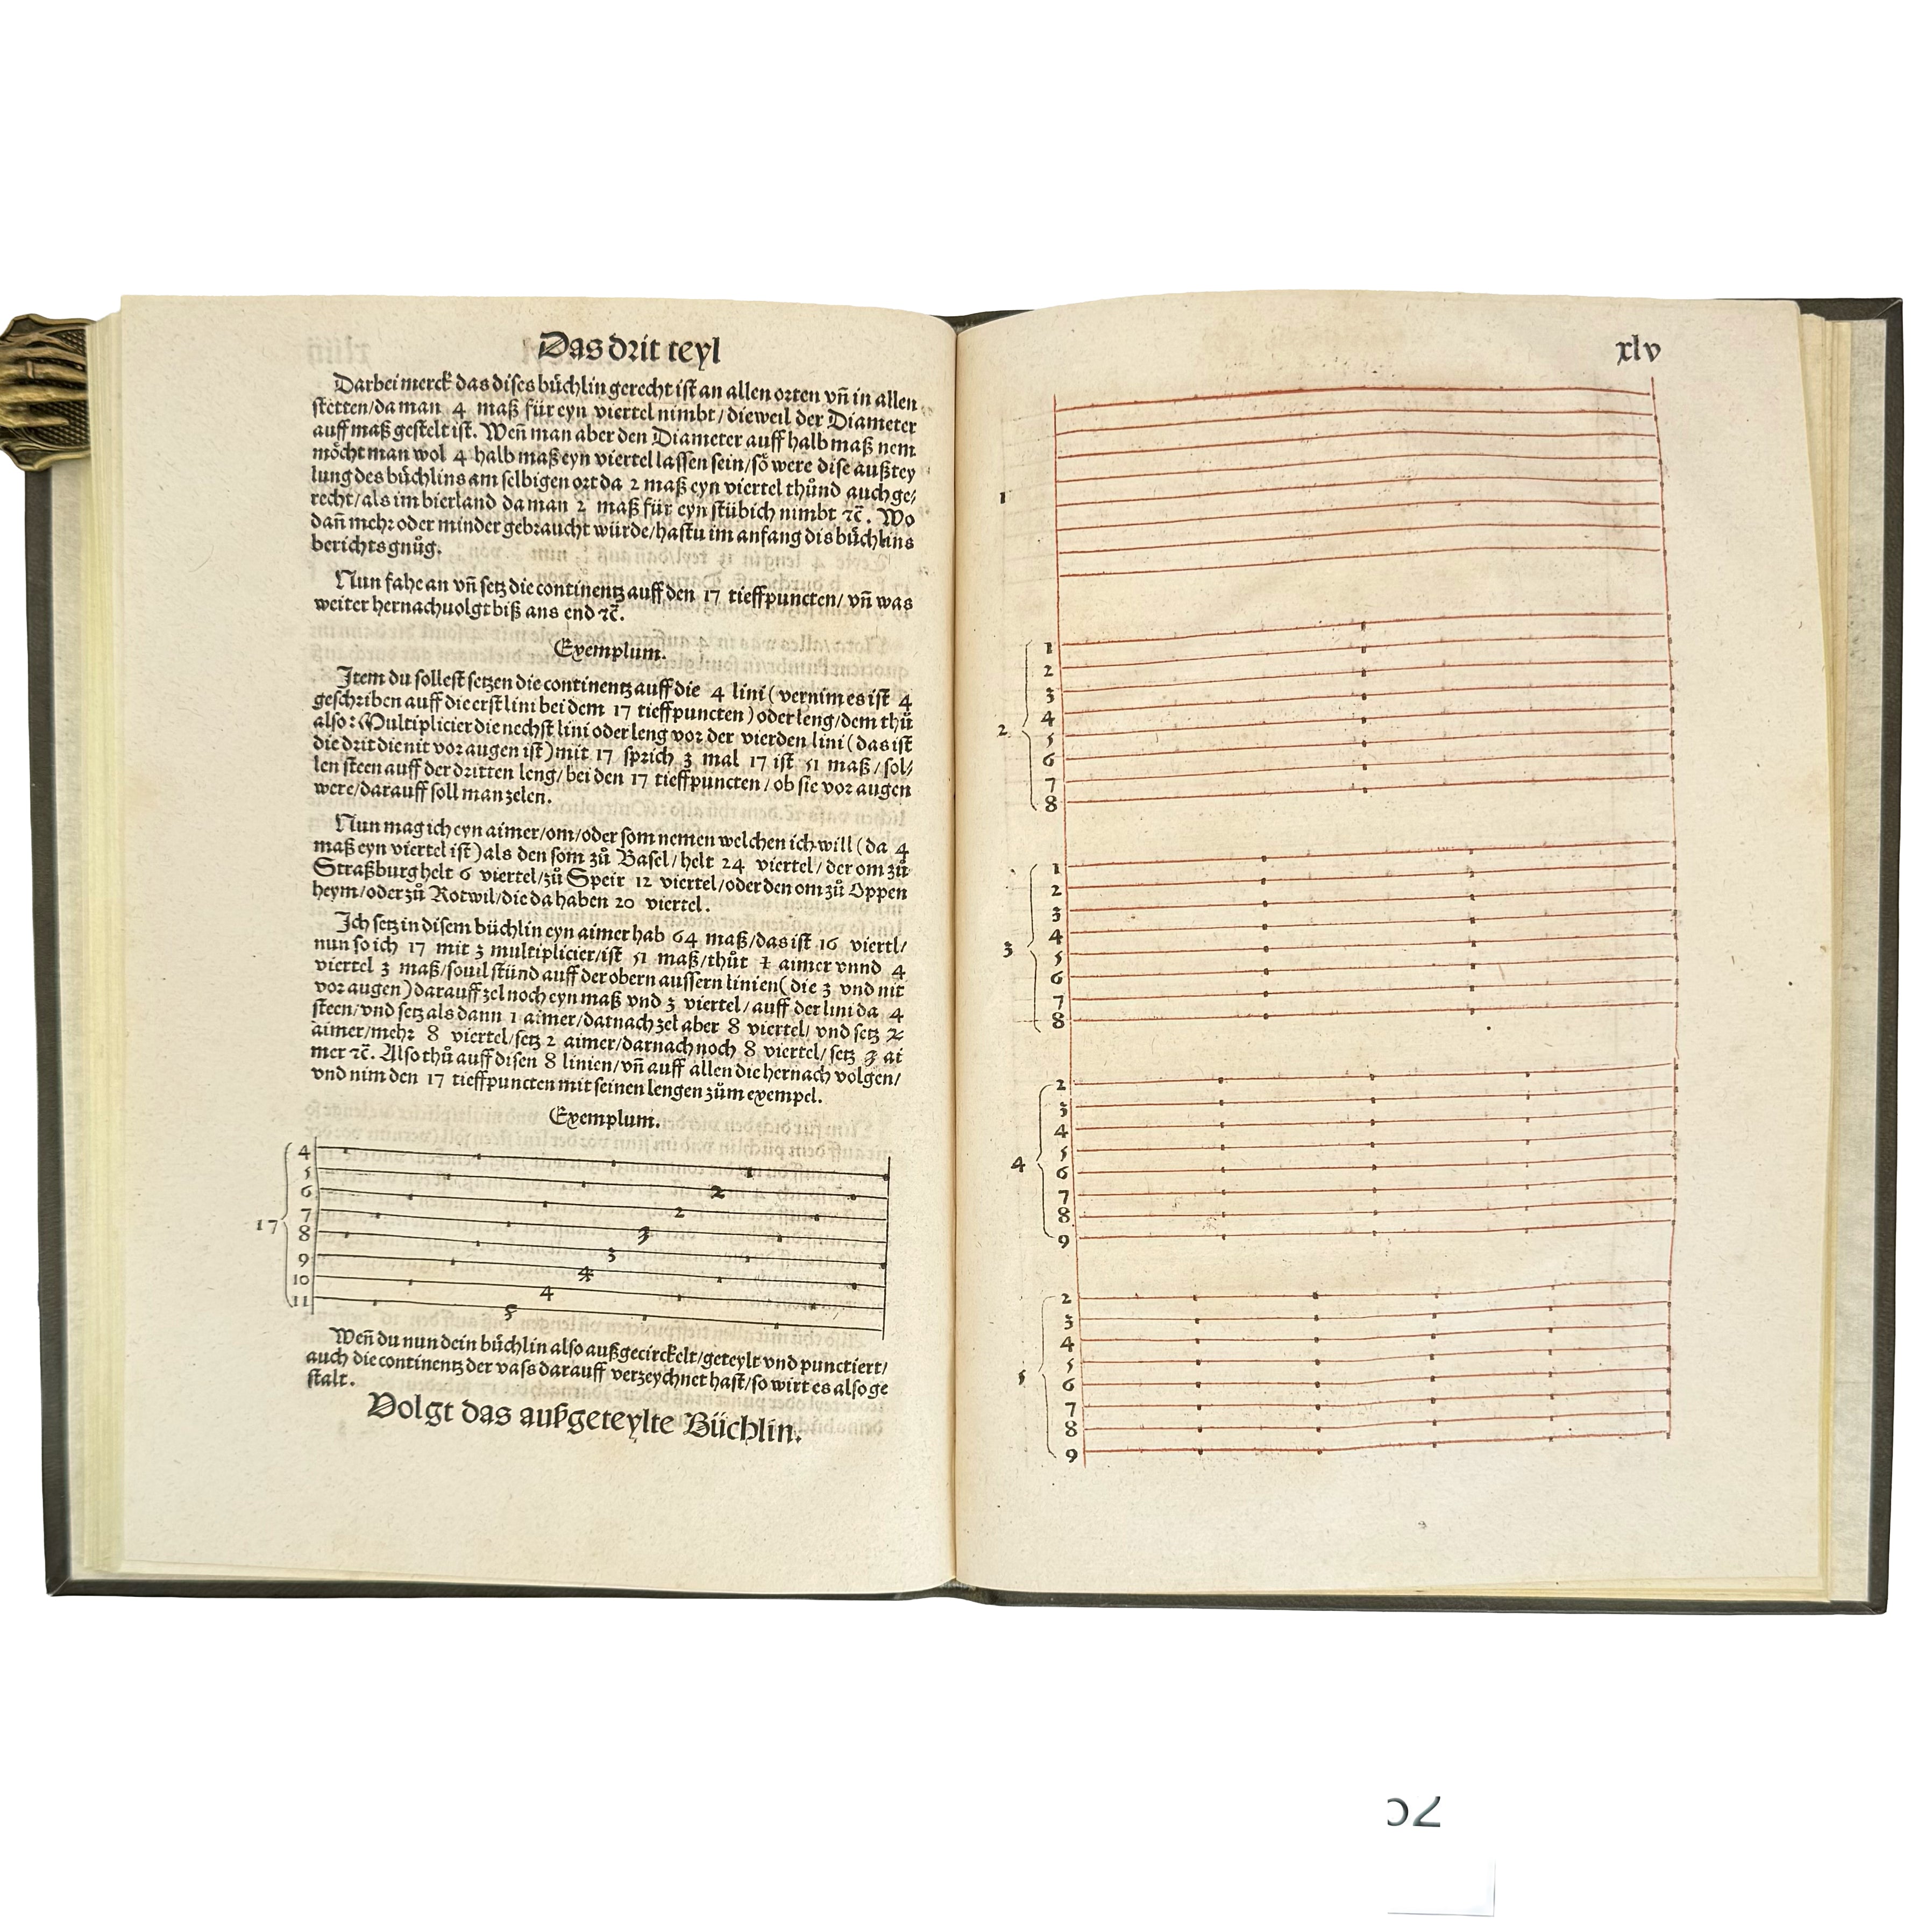 Das drit teyl
Darbei merck das dises bůchlin gerecht ist an allen orten vñ in allen
stetten/da man 4 maß für eyn viertel nimbt/dieweil der Diameter
auff maß gestelt ist. Weñ man aber den Diameter auff halb maß nem
möcht man wol 4 halb maß eyn viertel lassen sein/sö were dise außtey
lung des bůchlins am selbigen ort da 2 maß eyn viertel thůnd auch ge/
recht/als im bierland da man 2 maß für eyn stübich nimbt ⁊c̃. Wo
dañ mehr oder minder gebraucht würde/hastu im anfang dis bůchlins
berichts gnůg.
Nun fahe an vñ setz die continentz auff den 17 tieffpuncten/ vñ was
weiter hernach volgt biß ans end ⁊c̃.
Exemplum.
Item du sollest setzen die continentz auff die 4 lini (vernim es ist 4
geschriben auff die erst lini bei dem 17 tieffpuncten) oder leng/dem thů
also: Multiplicier die nechst lini oder leng vor der vierden lini (das ist
die drit die nit vor augen ist) mit 17 sprich 3 mal 17 ist 51 maß/ sol/
len steen auff der dritten leng/bei den 17 tieffpuncten/ob sie vor augen
were/darauff soll man zelen.
Nun mag ich eyn aimer/om/oder som nemen welchen ich will (da 4
maß eyn viertel ist) als den som zů Basel/helt 24 viertel/ der om zů
Straßburg helt 6 viertel/zů Speir 12 viertel/oder den om zů Oppen
heym/oder zů Rotwil/die da haben 20 viertel.
Ich setz in disem büchlin eyn aimer hab 64 maß/das ist 16 viertl/
nun so ich 17 mit 3 multiplicier/ist 51 maß/thůt ½ aimer vnnd 4
viertel 3 maß/souil stünd auff der obern aussern linien (die 3 vnd nit
vor augen) darauff zel noch eyn maß vnd 3 viertel/auff der lini da 4
steen/vnd setz als dann 1 aimer/darnach zel aber 8 viertel/ vnd setz 2
aimer/mehr 8 viertel/setz 2 aimer/darnach noch 8 viertel/setz 3 ai
mer ⁊c̃. Also thů auff disen 8 linien/vñ auff allen die hernach volgen/
vnd nim den 17 tieffpuncten mit seinen lengen zům exempel.
Exemplum.
4
5 1
6 2
7 2
17 8 3
9 3
10 4
11 4
5
Weñ du nun dein bůchlin also außgecirckelt/geteylt vnd punctiert/
auch die continentz der vass darauff verzeychnet hast/so wirt es also ge
stalt.
Volgt das außgeteylte Büchlin.
xlv
1
1
2
3
4
2 5
6
7
8
1
2
3
3 4
5
6
7
8
2
3
4
5
4 6
7
8
9
2
3
4
5
5 6
7
8
9